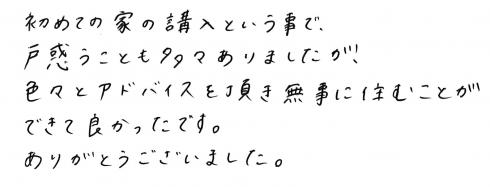 初めての家の購入という事で、
戸惑うことも多々ありましたが、
色々とアドバイスを頂き無事に住むことが
できて良かったです。
ありがとうございました。